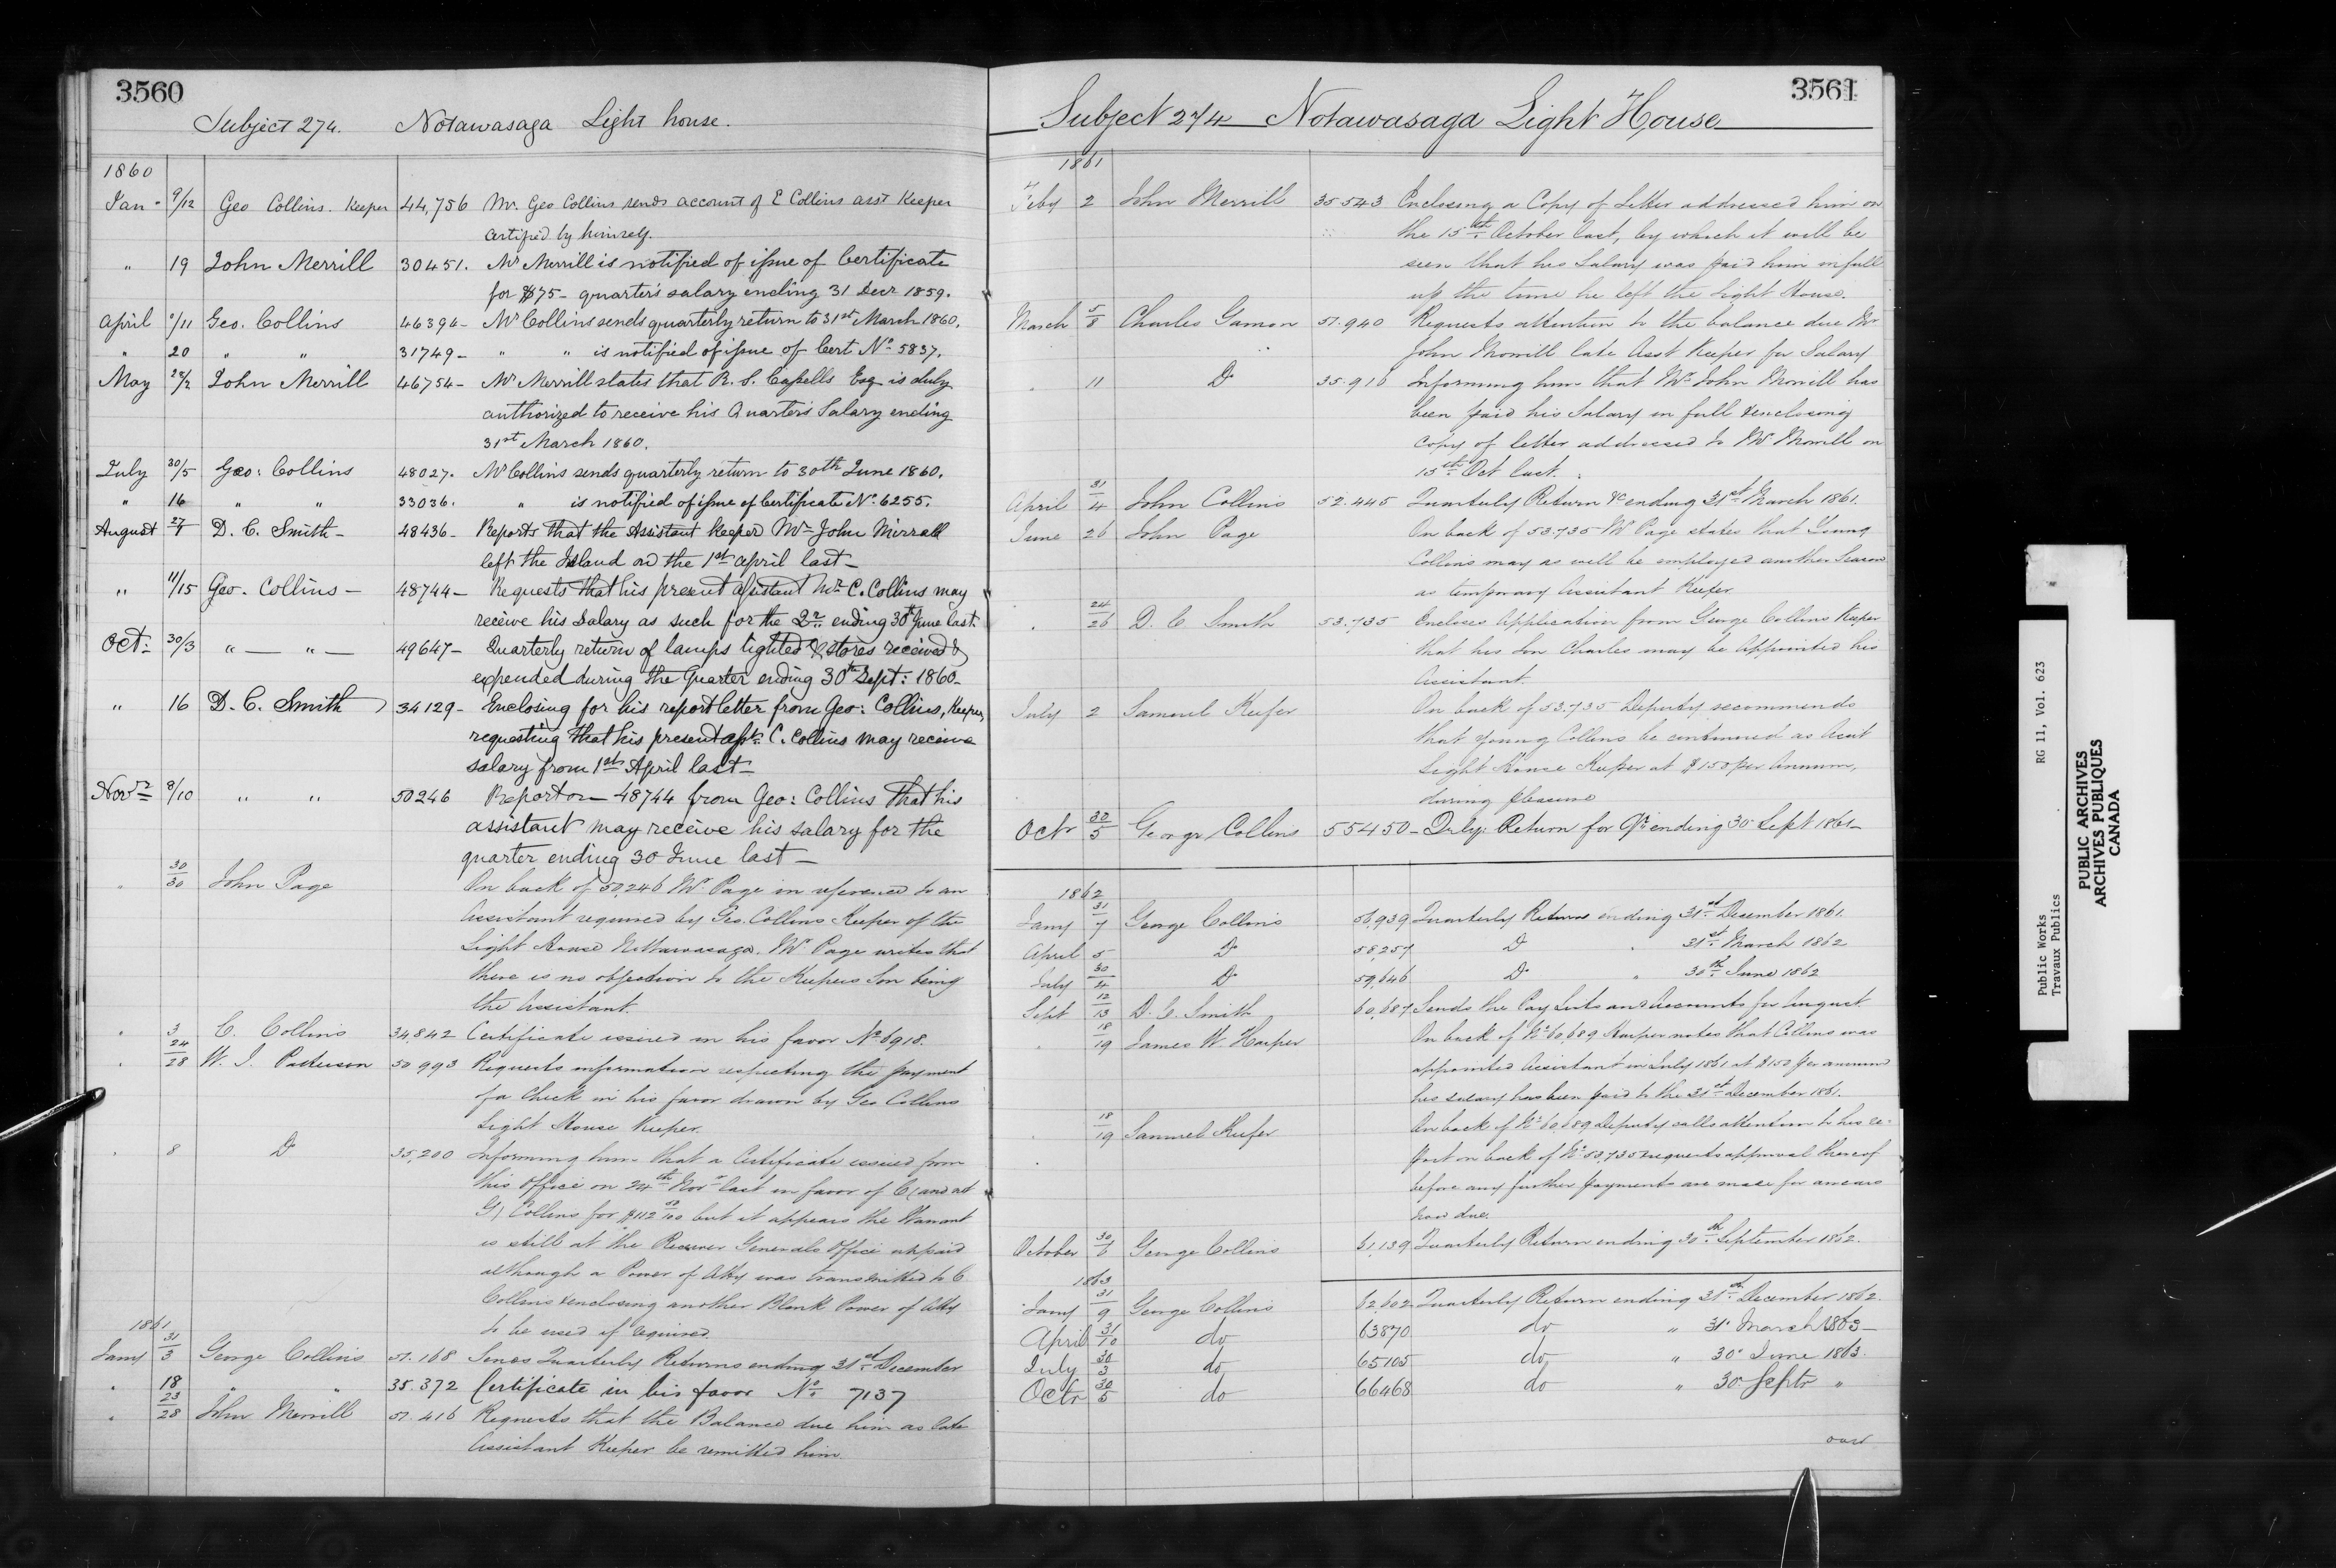 3560
Subject 274. Notawasaga Light house.
1860
Jan- 9/12 Geo Collins. Keeper 44,756 Mr. Geo Collins sends account of E Collins asst Keeper
certified by himself.
" 19 John Merrill 30451. Mr Merrill is notified of issue of Certificate
for $75- quarter's salary ending 31 Decr 1859.
April 9/11 Geo. Collins 46394- Mr Collins sends quarterly return to 31st March 1860.
" 20 " " 31749- " " is notified of issue of Cert No 5837.
May 28/2 John Merrill 46754- Mr Merrill states that R. S. Capells Esq is duly
authorized to receive his Quarters Salary ending
31st March 1860.
July 30/5 Geo: Collins 48027. Mr Collins sends quarterly return to 30th June 1860.
" 16 " " 33036. " is notified of issue of Certificate No. 6255.
August 27/7 D. C. Smith- 48436- Reports that the Assistant Keeper Mr John Mirrall
left the Island on the 1st april last-
" 11/15 Geo. Collins- 48744- Requests that his present assistant Mr C. Collins may
receive his Salary as such for the Qr. ending 30th June last.
Oct: 30/3 " — " — 49647- Quarterly return of lamps lighted & stores received &
expended during the Quarter ending 30th Sept: 1860-
" 16 D. C. Smith 34129- Enclosing for his report letter from Geo: Collins, Keeper,
requesting that his present asst. C. Collins may receive
salary from 1st April last-
Novr 8/10 " " 50246 Report on 48744 from Geo: Collins that his
assistant may receive his salary for the
quarter ending 30 June last-
" 30/30 John Page On back of 50,246 Mr Page in reference to an
Assistant required by Geo. Collins Keeper of the
Light House Nottawasaga. Mr Page writes that
there is no objection to the Keepers Son being
the Assistant.
" 3 C. Collins 34,842 Certificate issued in his favor No 6918.
" 24/28 W. J. Patterson 50993 Requests information respecting the payment
of a Check in his favor drawn by Geo Collins
Light House Keeper.
" 8 Do 35,200 Informing him that a Certificate issued from
this Office on 24th Novr last in favor of C (and not
G) Collins for $112 50/100 but it appears the Warrant
is still at the Receiver Generals Office unpaid
although a Power of Atty was transmitted to C.
Collins & enclosing another Blank Power of Atty
to be used if required.
1861
Jany 31/3 George Collins 51.168 Sends Quarterly Returns ending 31st December
" 18 " " 35.372 Certificate in his favor No. 7137
" 23/28 John Merrill 51.416 Requests that the Balance due him as late
Assistant Keeper be remitted him.
3561
Subject 274 Notawasaga Light House
1861
Feby 2 John Merrill 35543 Enclosing a Copy of Letter addressed him on
the 15th October last, by which it will be
seen that his Salary was paid him in full
up the time he left the Light House.
March 5/8 Charles Gamon 51.940 Requests attention to the balance due Mr
John Morrill late Asst Keeper for Salary
" 11 Do 35.916 Informing him that Mr John Morrill has
been paid his Salary in full & enclosing
Copy of letter addressed to Mr Morrill on
15th Oct last.
April 31/4 John Collins 52.445 Quarterly Return &c ending 31st March 1861.
June 26 John Page On back of 53.735 Mr Page states that Young
Collins may as well be employed another Season
as temporary Assistant Keeper.
" 24/26 D. C. Smith 53.735 Encloses Application from George Collins Keeper
that his Son Charles may be Appointed his
Assistant.
July 2 Samuel Keefer On back of 53.735 Deputy recommends
that Young Collins be continued as Asst
Light House Keeper at $150 per Annum,
during pleasure
Octr 30/5 George Collins 55450- Qrly Return for Qr ending 30 Sept 1861-
1862
Jany 31/7 George Collins 56,939 Quarterly Return ending 31st December 1861.
April 5 Do 58,257 Do " 31st March 1862
July 30/4 Do 59,646 Do " 30th June 1862
Sept 12/13 D. C. Smith 60,687 Sends the Pay Lists and Accounts for August.
" 18/19 James W. Harper On back of No 60,689 Harper notes that Collins was
appointed Assistant in July 1861 at $150 per annum
his salary has been paid to the 31st December 1861.
" 18/19 Samuel Keefer On back of No 60,689 Deputy calls attention to his re-
port on back of No 53,735 & requests approval thereof
before any further payments are made for arrears
now due.
October 30/6 George Collins 61,139 Quarterly Return ending 30th September 1862.
1863
Jany 31/9 George Collins 62,602 Quarterly Return ending 31st December 1862.
April 31/10 do 63870 do " 31 March 1863-
July 30/3 do 65105 do " 30 June 1863.
Octr 30/5 do 66468 do " 30 Septr "
over
Public Works RG 11, Vol. 623
Travaux Publics
PUBLIC ARCHIVES
ARCHIVES PUBLIQUES
CANADA